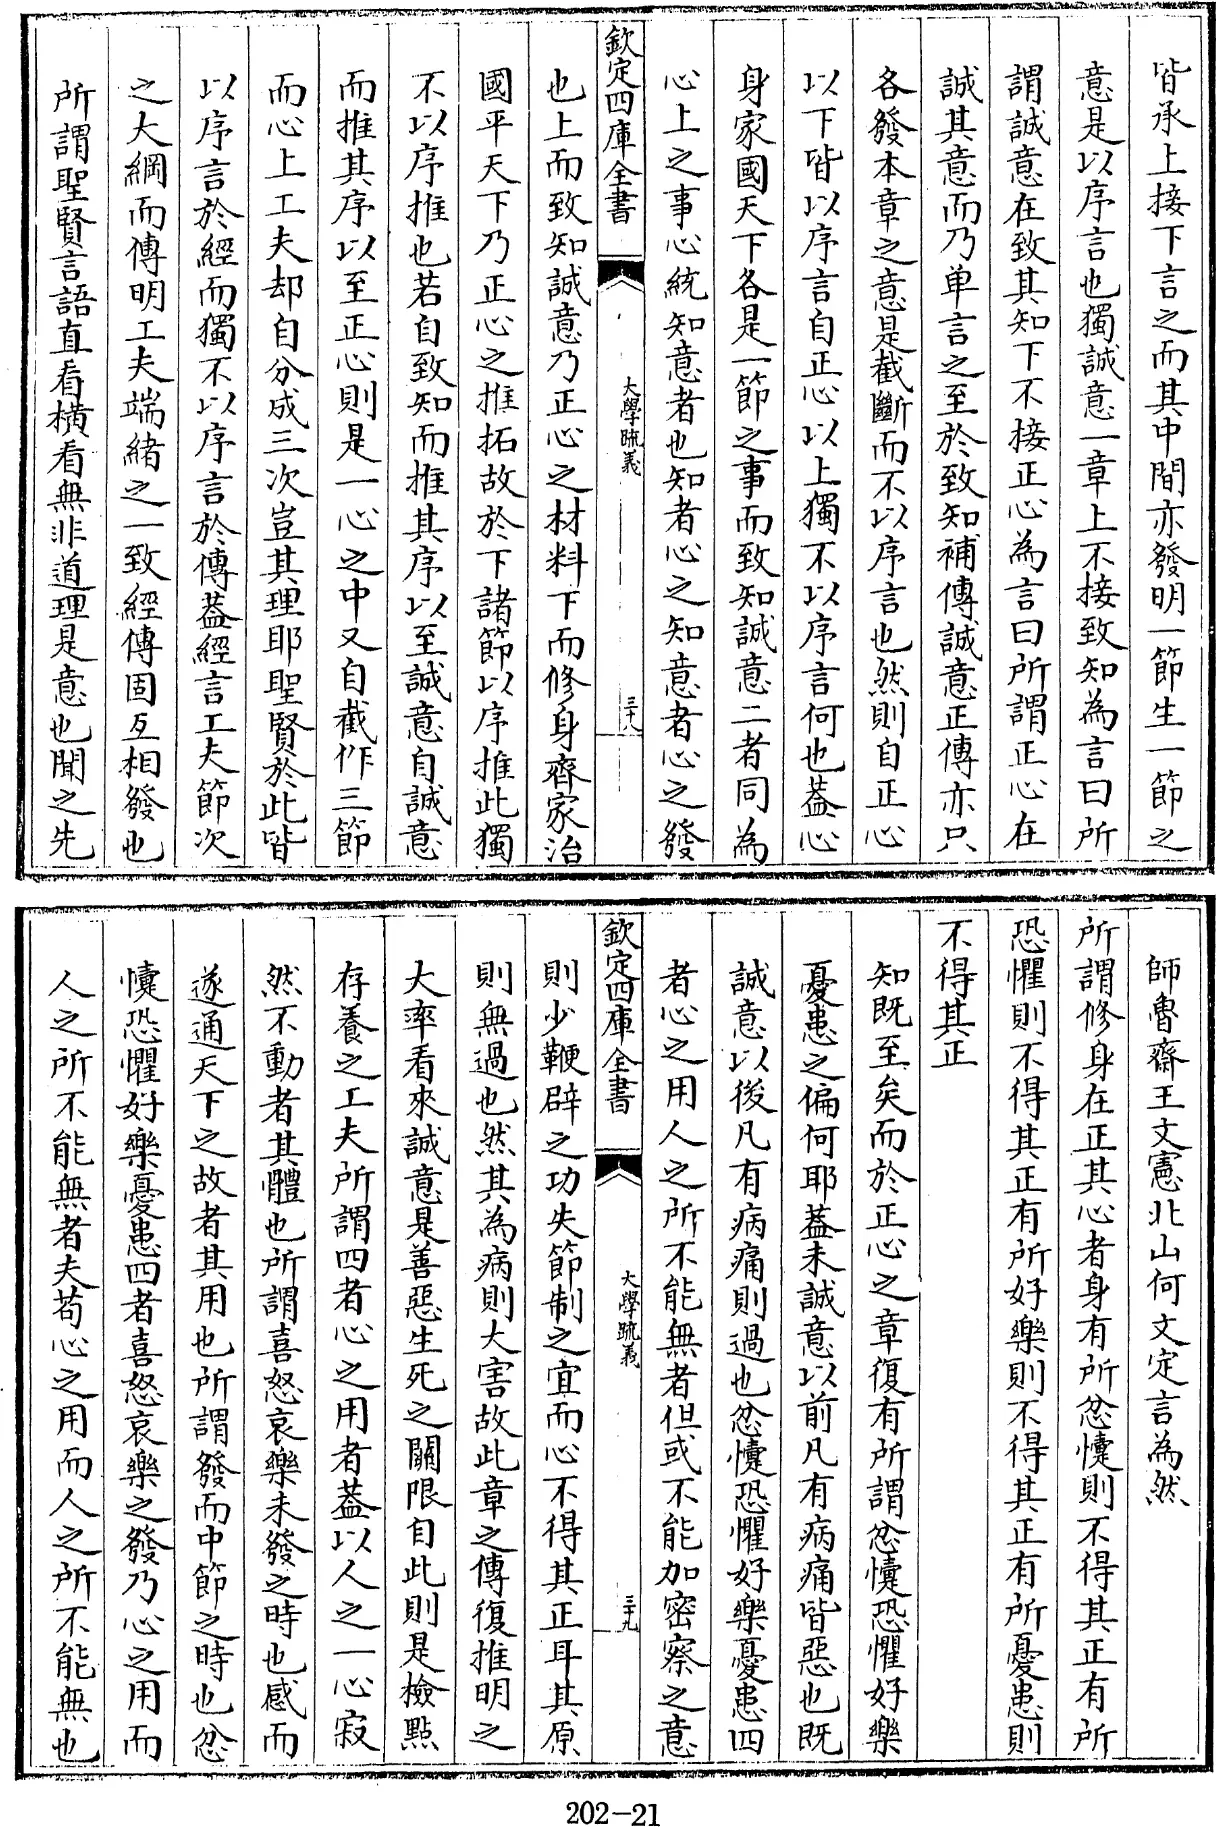 皆承上接下言之而其中間亦發明一節生一節之
意是以序言也獨誠意一章上不接致知為言曰所
謂誠意在致其知下不接正心為言曰所謂正心在
誠其意而乃单言之至於致知補傳誠意正傳亦只
各發本章之意是截斷而不以序言也然則自正心
以下皆以序言自正心以上獨不以序言何也葢心
身家國天下各是一節之事而致知誠意二者同為
心上之事心統知意者也知者心之知意者心之發
欽定四庫全書 大學疏義 三十八
也上而致知誠意乃正心之材料下而修身齊家治
國平天下乃正心之推拓故於下諸節以序推此獨
不以序推也若自致知而推其序以至誠意自誠意
而推其序以至正心則是一心之中又自截作三節
而心上工夫却自分成三次豈其理耶聖賢於此皆
以序言於經而獨不以序言於傳葢經言工夫節次
之大綱而傳明工夫端緒之一致經傳固互相發也
所謂聖賢言語直看横看無非道理是意也聞之先
師魯齋王文憲北山何文定言為然
所謂修身在正其心者身有所忿懥則不得其正有所
恐懼則不得其正有所好樂則不得其正有所憂患則
不得其正
知既至矣而於正心之章復有所謂忿懥恐懼好樂
憂患之偏何耶葢未誠意以前凡有病痛皆惡也既
誠意以後凡有病痛則過也忿懥恐懼好樂憂患四
者心之用人之所不能無者但或不能加密察之意
欽定四庫全書 大學疏義 三十九
則少鞭辟之功失節制之宜而心不得其正耳其原
則無過也然其為病則大害故此章之傳復推明之
大率看來誠意是善惡生死之關限自此則是檢點
存養之工夫所謂四者心之用者葢以人之一心寂
然不動者其體也所謂喜怒哀樂未發之時也感而
遂通天下之故者其用也所謂發而中節之時也忿
懥恐懼好樂憂患四者喜怒哀樂之發乃心之用而
人之所不能無者夫茍心之用而人之所不能無也
202-21